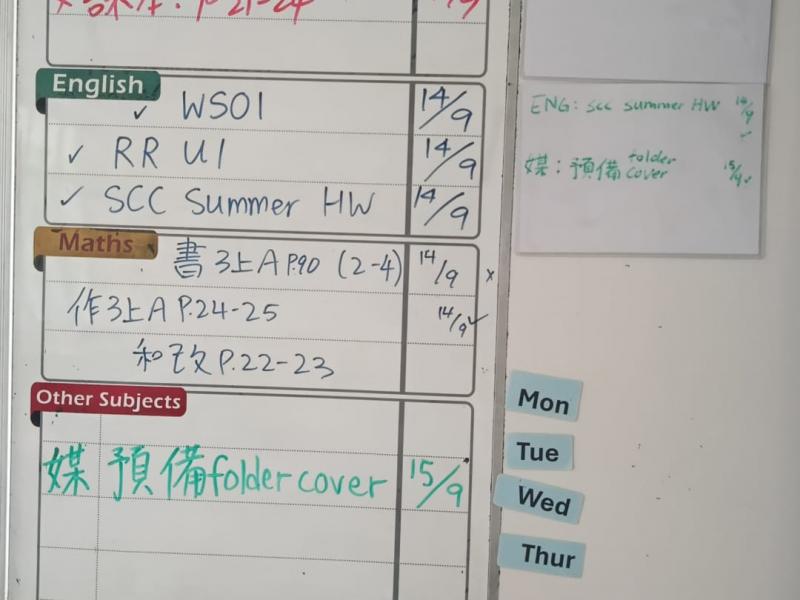 課本: P.21-24
English
✓ WS01 14/9
✓ RR U1 14/9
✓ SCC Summer HW 14/9
Maths
書3上A P.90 (2-4) 14/9 ×
作3上A P.24-25 14/9 ✓
和改 P.22-23
Other Subjects
媒 預備folder cover 15/9
ENG: SCC Summer HW 14/9 ✓
媒: 預備 folder cover 15/9 ✓
Mon
Tue
Wed
Thur